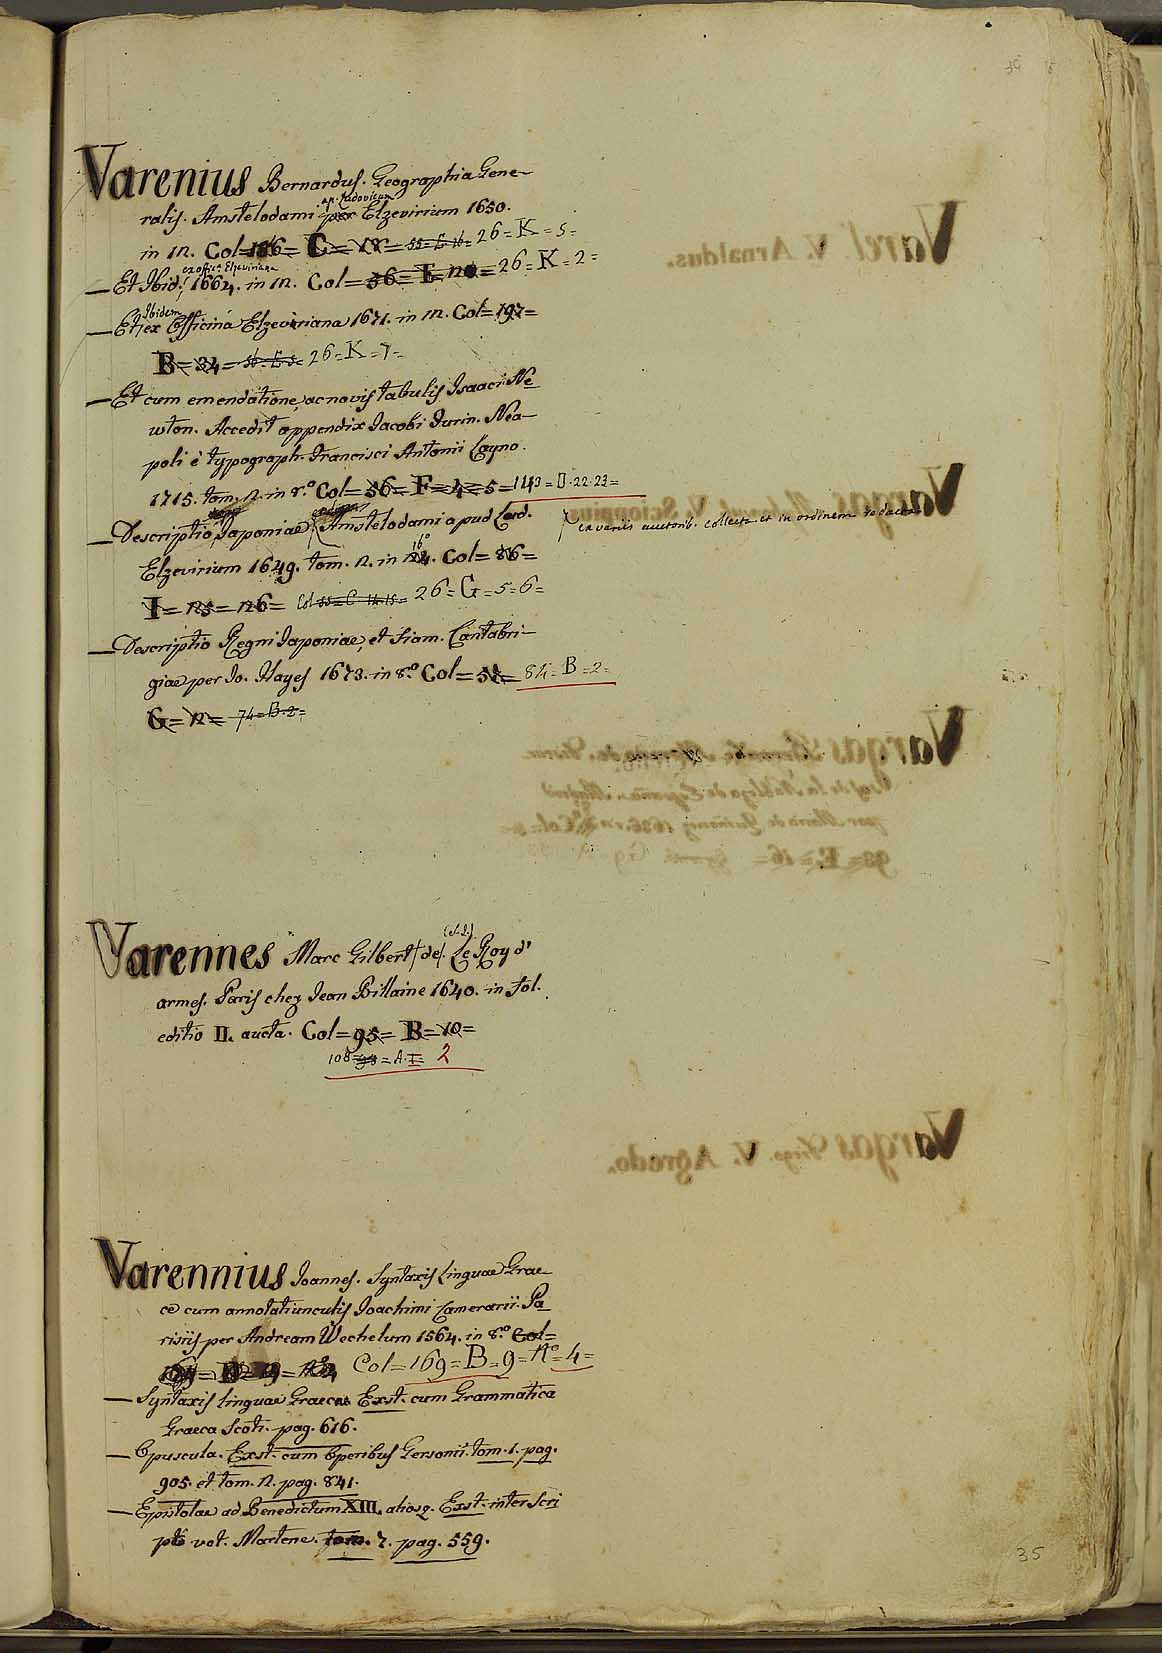 Varenius Bernardus. Geographia Gene-
ralis. Amstelodami ap. Ludovicum Elzevirium 1650.
in 12. Col= C= 18= 55=E=16= 26=K=5=
Et Ibid. ex offic. Elzeviriana 1664. in 12. Col=56=E= 26=K=2=
Et Ibidem ex Officina Elzeviriana 1671. in 12. Col=197=
B=34= 56=E=5= 26=K=7=
Et cum emendatione, ac novis tabulis Isaaci Ne
wton. Accedit appendix Jacobi Jurin. Nea-
poli è typograph. Francisci Antonii Layno.
1715. tom. 2. in 8.º Col=56=F=4=5= 143=D.22.23=
Descriptio Japoniae Amstelodami apud Lud. ex variis auctorib. collecta et in ordinem redacta
Elzevirium 1649. tom. 2. in 16º. Col=86=
I=125=126= Col 55=C=14.15= 26=G=5=6=
Descriptio Regni Japoniae, et Siam. Cantabri-
giae per Jo. Hayes 1673. in 8.º Col=57= 84=B=2=
G=12= 74=B.2=
Varennes Marc Gilbert de. Le Roy d'
armes. Paris chez Jean Billaine 1640. in fol.
editio II. aucta. Col=95=B=10=
108=98=A.I= 2
Varennius Joannes. Syntaxis Linguae Grae-
ce cum annotatiunculis Joachimi Camerarii. Pa
risiis per Andream Wechelum 1564. in 8.º Col=
Col=169=B=9=Aº=4=
Syntaxis linguae Graecae Exst. cum Grammatica
Graeca Scoti. pag. 616.
Opuscula. Exst. cum Operibus Gersonii. tom. 1. pag.
905. et tom. 2. pag. 841.
Epistolae ad Benedictum XIII. aliosq. Exst. inter Scri
pt. vet. Martene. tom. 7. pag. 559.
35